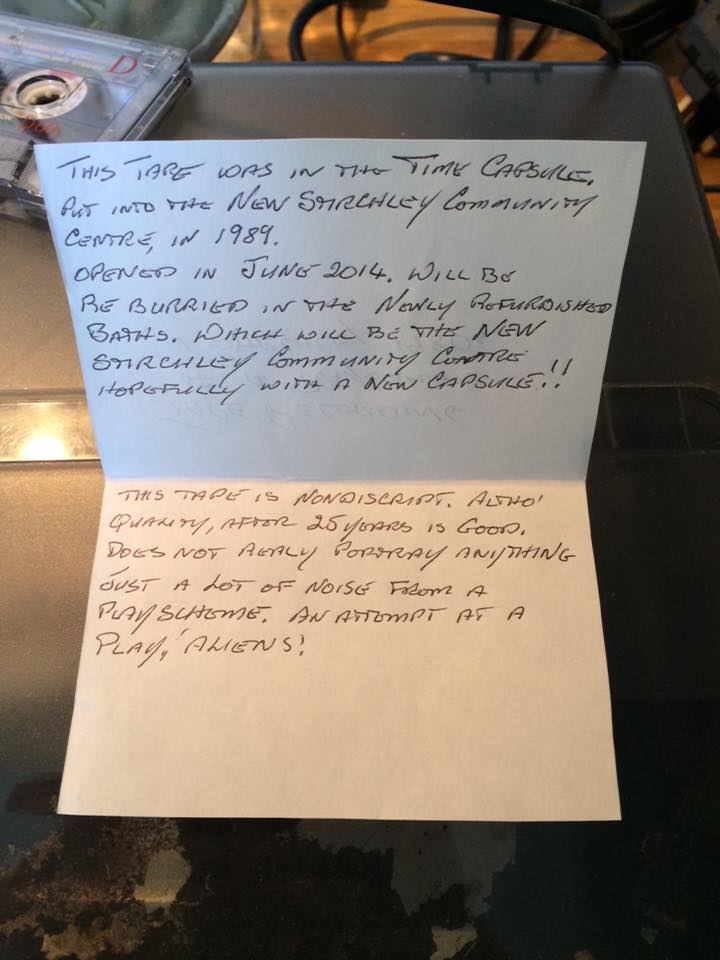 D
THIS TAPE WAS IN THE TIME CAPSULE.
PUT INTO THE NEW STIRCHLEY COMMUNITY
CENTRE, IN 1989.
OPENED IN JUNE 2014. WILL BE
BE BURRIED IN THE NEWLY REFURBISHED
BATHS. WHICH WILL BE THE NEW
STIRCHLEY COMMUNITY CENTRE
HOPEFULLY WITH A NEW CAPSULE!!
TAPE RECORDING
THIS TAPE IS NONDISCRIPT. ALTHO'
QUALITY, AFTER 25 YEARS IS GOOD.
DOES NOT REALY PORTRAY ANYTHING
JUST A LOT OF NOISE FROM A
PLAYSCHEME. AN ATTEMPT AT A
PLAY,, 'ALIENS!